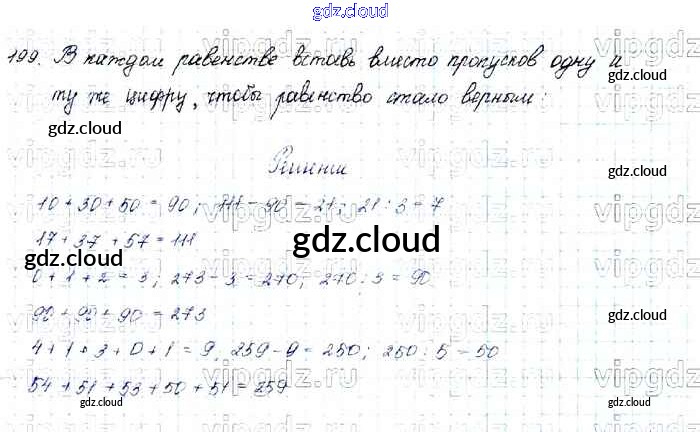 gdz.cloud
199. В каждом равенстве вставь вместо пропусков одну и
ту же цифру, чтобы равенство стало верным:
gdz.cloud
gdz.cloud
Решение
10 + 30 + 50 = 90; 111 - 90 = 21; 21 : 3 = 7
17 + 37 + 57 = 111
gdz.cloud
gdz.cloud
gdz.cloud
0 + 1 + 2 = 3; 273 - 3 = 270; 270 : 3 = 90
90 + 90 = 273
4 + 1 + 3 + 0 + 1 = 9, 259 - 9 = 250; 250 : 5 = 50
54 + 51 + 53 + 50 + 51 = 259
gdz.cloud
gdz.cloud
gdz.cloud
vipgdz.ru